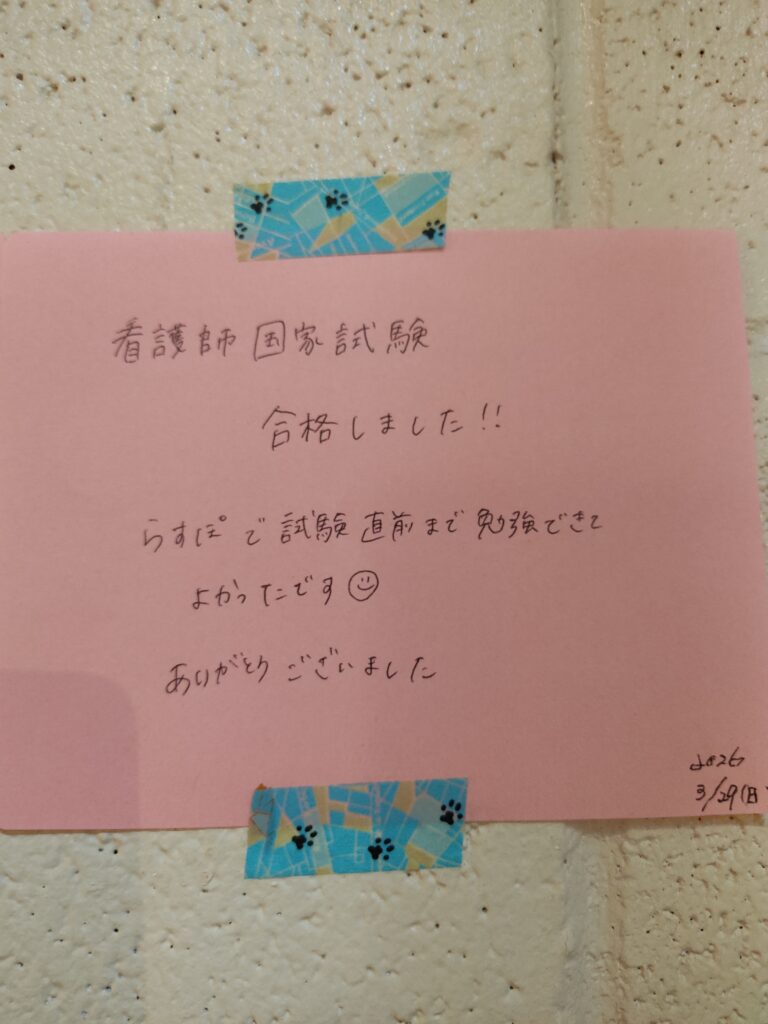 看護師 国家試験
合格しました!!
らすぽで 試験 直前まで 勉強できて
よかったです☺
ありがとうございました
2026
3/29(日